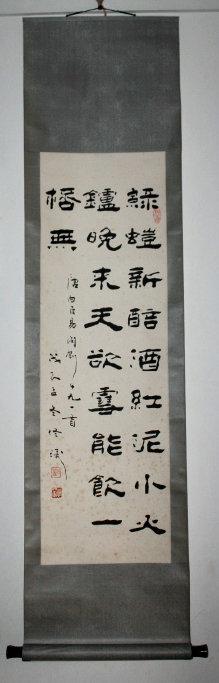 綠螘新醅酒紅泥小火
鑪晚来天欲雪能飲一
桮無
唐白居易問劉十九一首